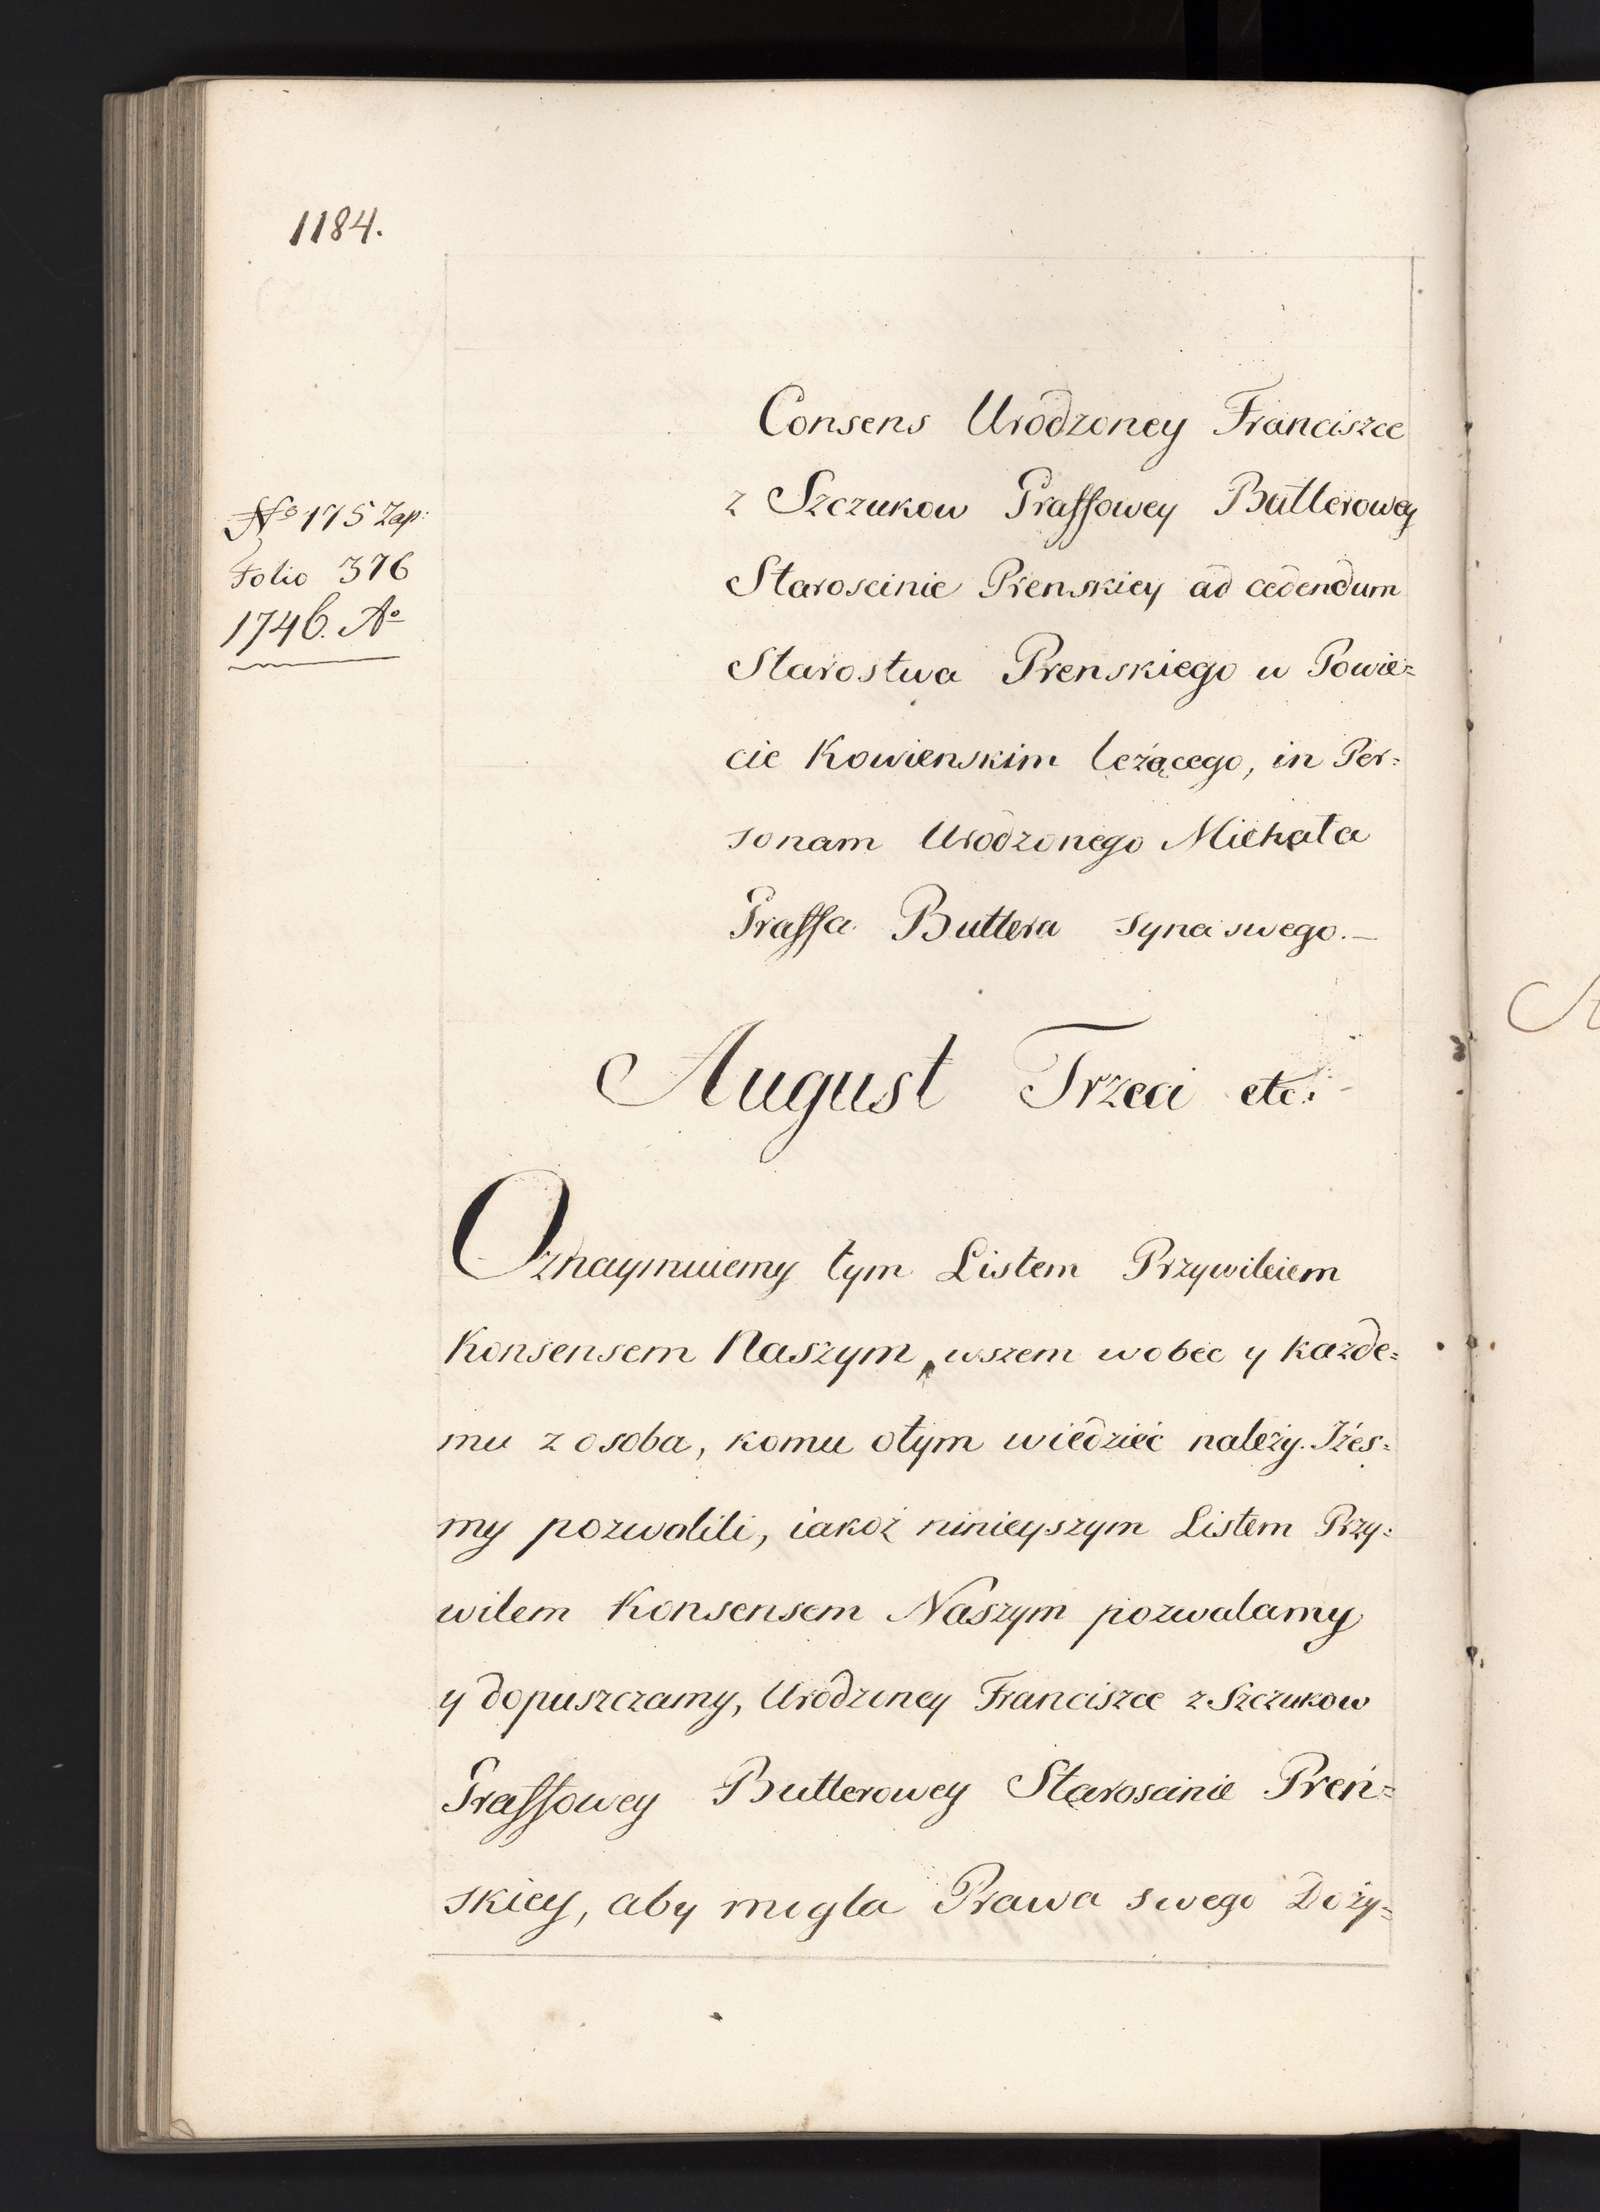 1184.
Consens Urodzoney Franciszce
z Szczukow Graffowey Buttlerowey
Staroscinie Prenskiey ad cedendum
Starostwa Prenskiego w Powie=
cie Kowienskim leżącego, in Per=
sonam Urodzonego Michała
Graffa Buttlera syna swego.
No 175 Zap:
Folio 376
1746. Ao
August Trzeci etc:
Oznaymuiemy tym Listem Przywileiem
Konsensem Naszym, wszem wobec y każde=
mu z osoba, komu otym wiedzieć należy. Iżes=
my pozwolili, iakoż ninieyszym Listem Przy=
wilem Konsensem Naszym pozwalamy
y dopuszczamy, Urodzoney Franciszce z Szczukow
Graffowey Butlerowey Staroscinie Preń=
skiey, aby mogla Prawa swego Doży=